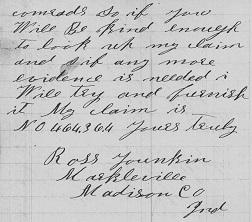 comrads So if you
Will Be Kind enough
to look up my claim
and if any more
evidence is needed i
Will try and furnish
it My claim is
NO 464364 Yours truly
Ross Younkin
Markleville
Madison Co
Ind